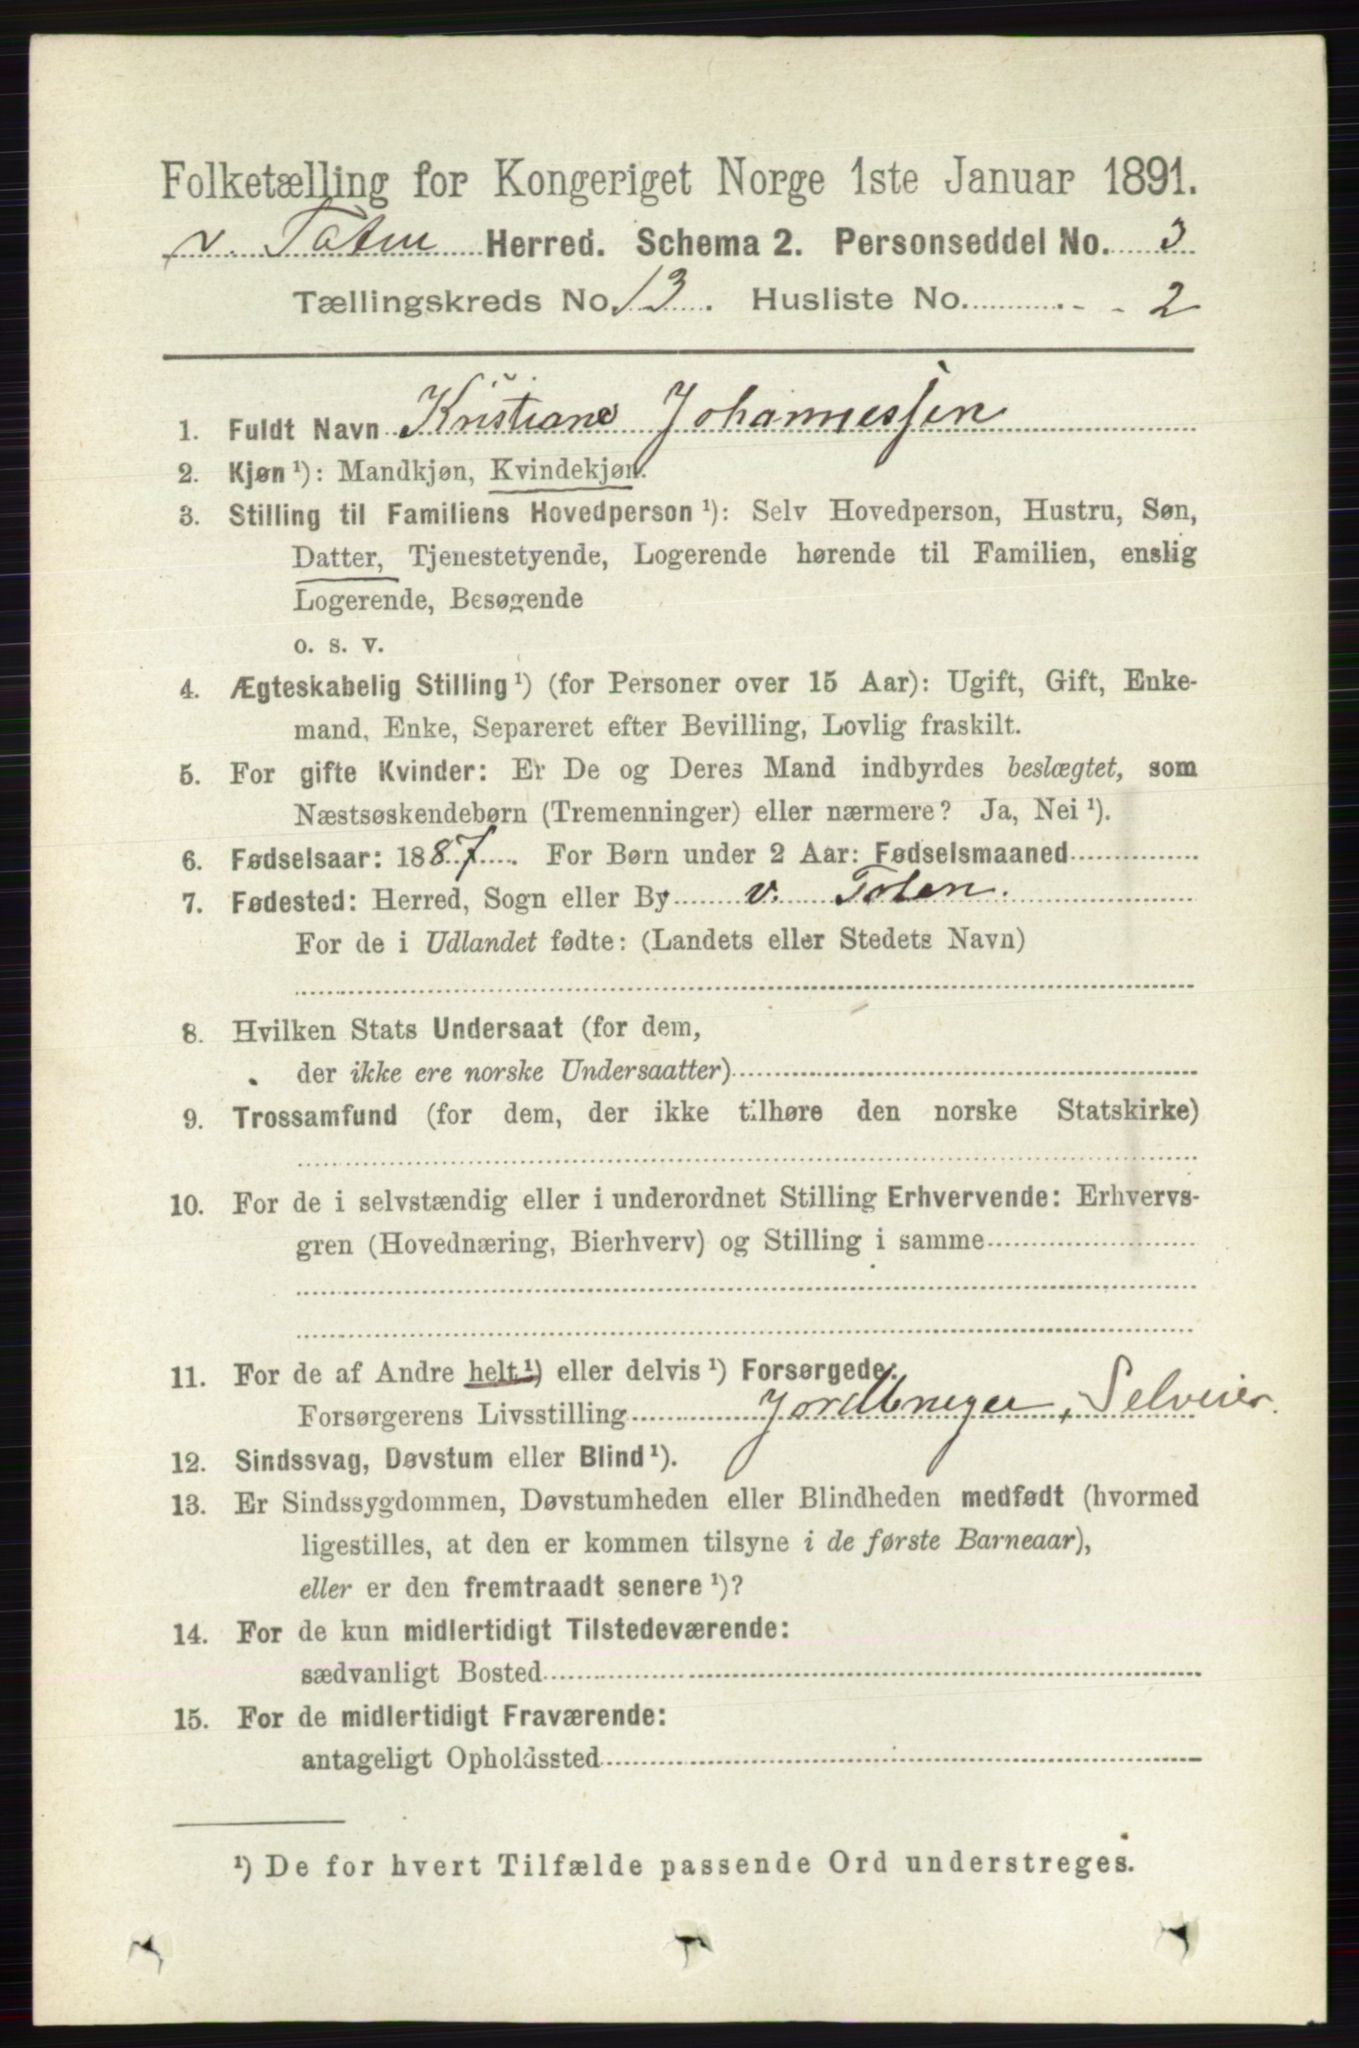 Folketælling for Kongeriget Norge 1ste Januar 1891.
v. Toten Herred. Schema 2. Personseddel No. 3
Tællingskreds No. 13. Husliste No. 2
1. Fuldt Navn Kristiane Johannessen
2. Kjøn ¹): Mandkjøn, Kvindekjøn.
3. Stilling til Familiens Hovedperson ¹): Selv Hovedperson, Hustru, Søn,
Datter, Tjenestetyende, Logerende hørende til Familien, enslig
Logerende, Besøgende
o. s. v.
4. Ægteskabelig Stilling ¹) (for Personer over 15 Aar): Ugift, Gift, Enke-
mand, Enke, Separeret efter Bevilling, Lovlig fraskilt.
5. For gifte Kvinder: Er De og Deres Mand indbyrdes beslægtet, som
Næstsøskendebørn (Tremenninger) eller nærmere? Ja, Nei ¹).
6. Fødselsaar: 1887. For Børn under 2 Aar: Fødselsmaaned
7. Fødested: Herred, Sogn eller By v. Toten.
For de i Udlandet fødte: (Landets eller Stedets Navn)
8. Hvilken Stats Undersaat (for dem,
der ikke ere norske Undersaatter)
9. Trossamfund (for dem, der ikke tilhøre den norske Statskirke)
10. For de i selvstændig eller i underordnet Stilling Erhvervende: Erhvervs-
gren (Hovednæring, Bierhverv) og Stilling i samme
11. For de af Andre helt ¹) eller delvis ¹) Forsørgede:
Forsørgerens Livsstilling Jordbruger, Selveier.
12. Sindssvag, Døvstum eller Blind ¹).
13. Er Sindssygdommen, Døvstumheden eller Blindheden medfødt (hvormed
ligestilles, at den er kommen tilsyne i de første Barneaar),
eller er den fremtraadt senere ¹)?
14. For de kun midlertidigt Tilstedeværende:
sædvanligt Bosted
15. For de midlertidigt Fraværende:
antageligt Opholdssted
¹) De for hvert Tilfælde passende Ord understreges.